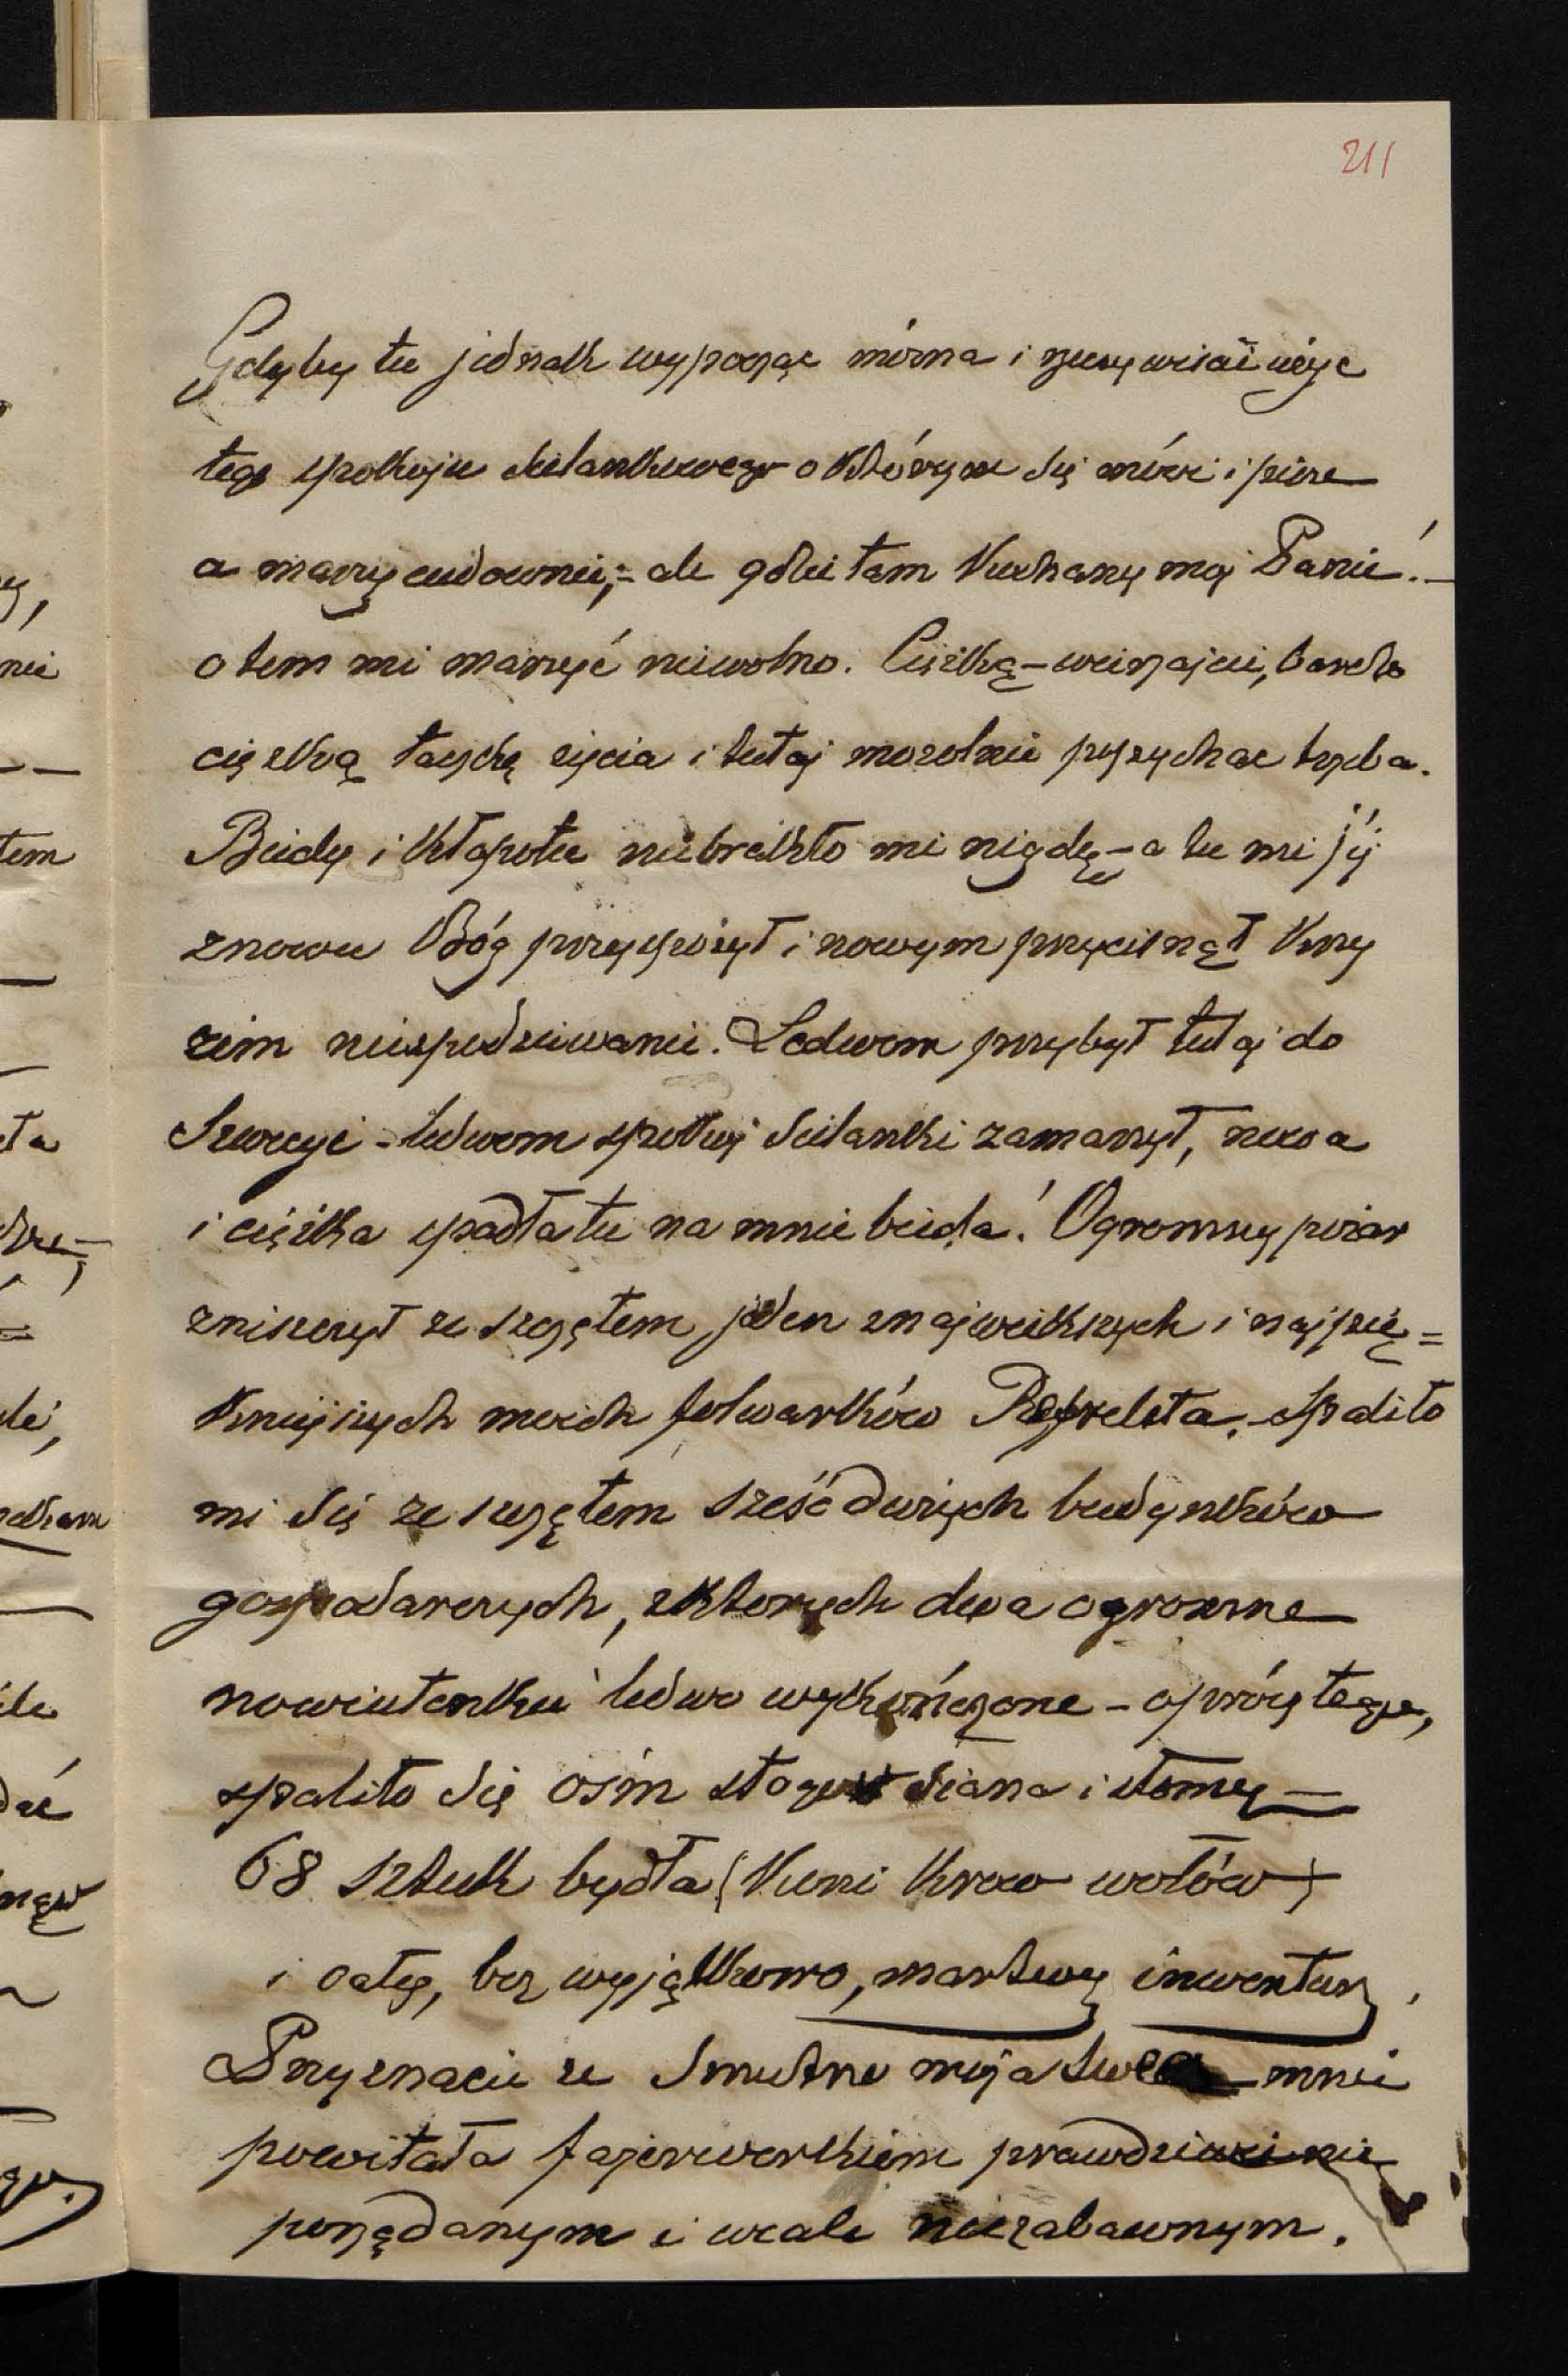 211
Gdyby tu jednak wypocząć mórna i rzeczywiście użyc
tego spokoju sielankowego o którym się mówi i pisze
a marzy cudownie; = ale gdzie tam Kochany moj Panie! —
o tem mi marzyć niewolno. Ciężką — wierzajcie, bardzo
cięzką taczkę życia i tutaj mozolnie popychac trzeba.
Biedy i kłopotu niebrakło mi nigdy — a tu mi jéj
znowu Bóg przysporzył i nowym przycisnął krzy
zem niespodziewanie. Ledwom przybył tutaj do
Szwecyi — ledwom spokoj sielanki zamarzył, nowa
i ciężka spadła tu na mnie bieda! Ogromny pożar
zniszczył ze szczętem jeden z największych i najpię=
kniejszych moich folwarków Refvelsta. — Spaliło
mi się ze szczętem sześć dużych budynków
gospodarczych, z ktorych dwa ogromne
nowiutenkie ledwo wykończone — oprócz tego,
spaliło się osím stogów siana i słomy —
68 sztuk bydła (koni krow wołów)
i cały, bez wyjątkowo, martwy inwentarz,
Przyznacie ze smutno moja Swea mnie
powitała fajerwerkiem prawdziwie nie
porządanym i wcale niezabawnym.